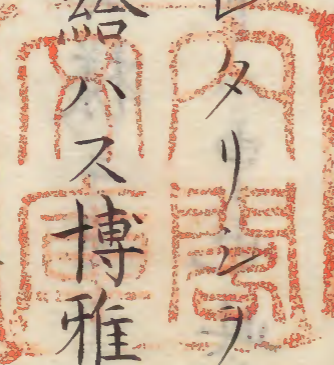 タリシヲ
給ハス博雅